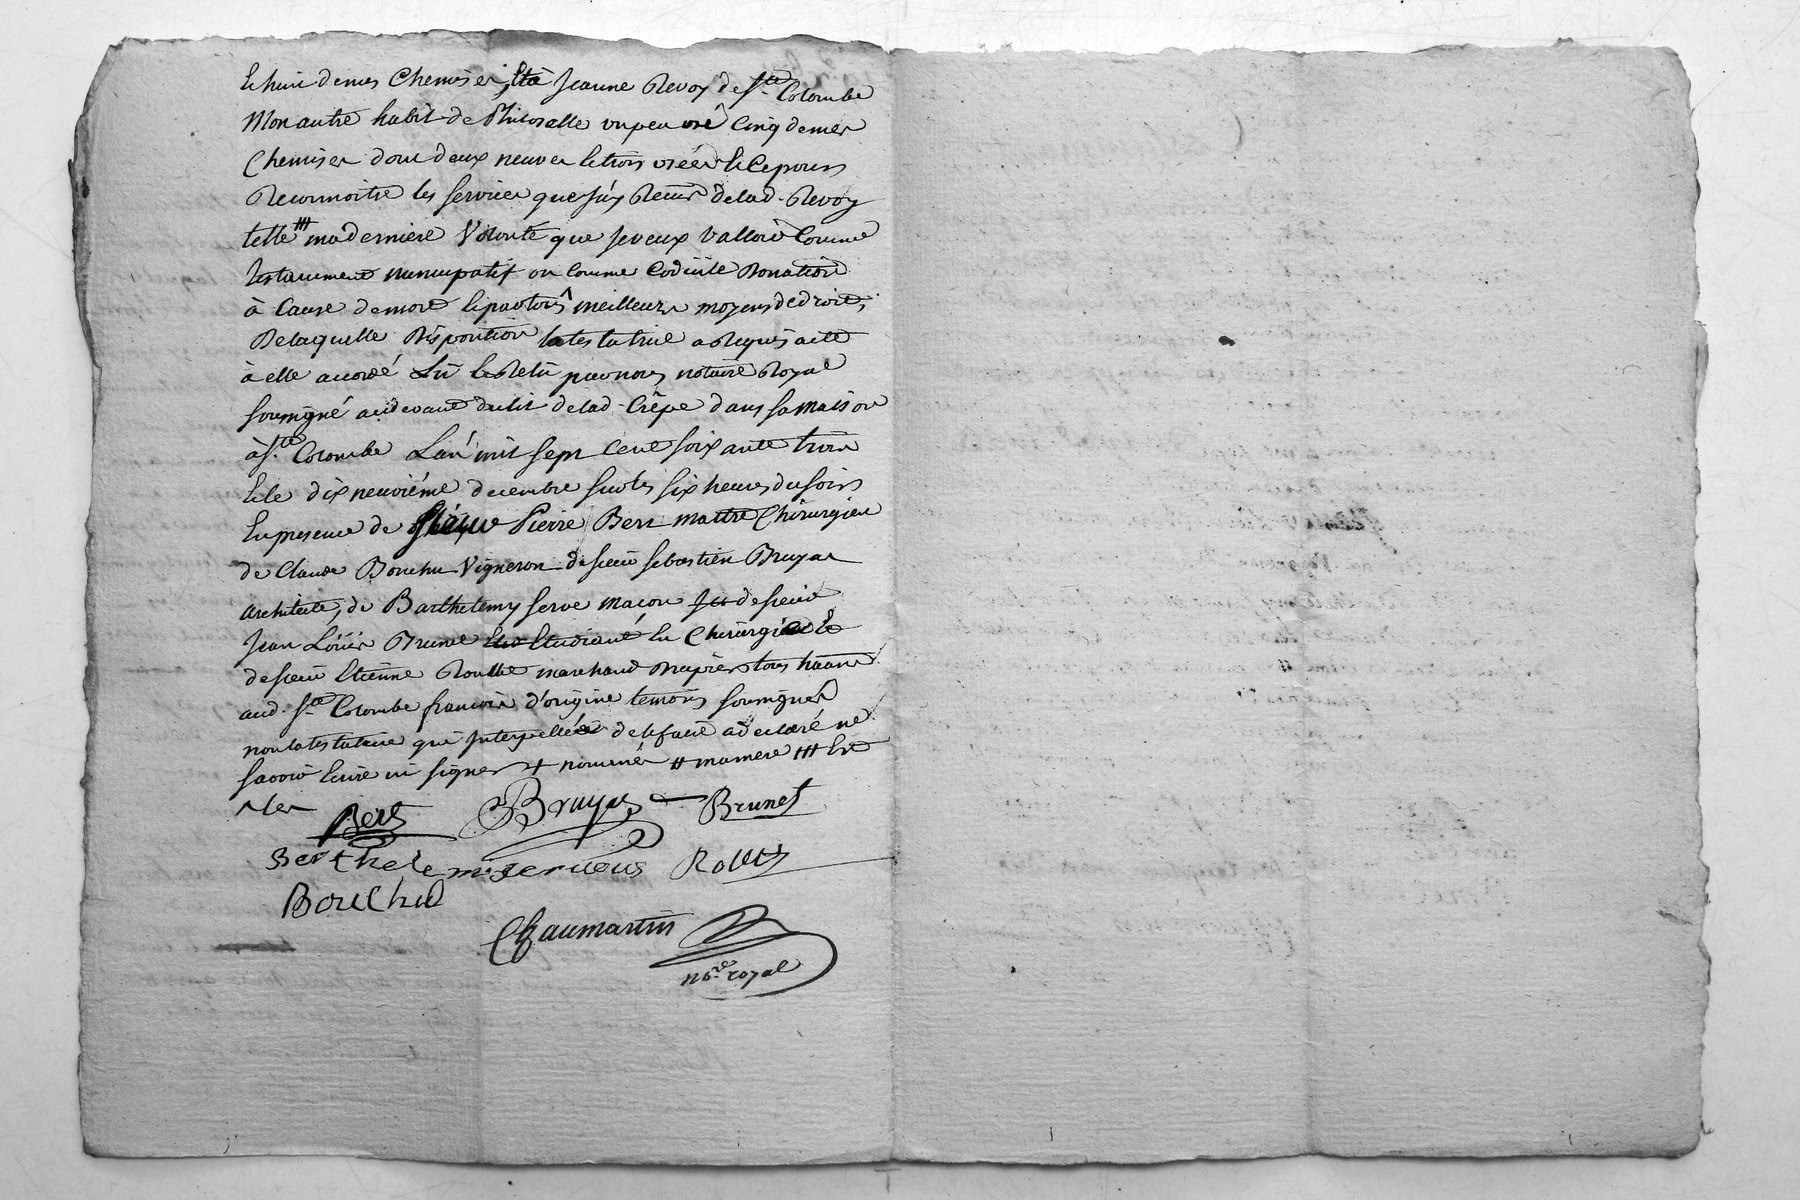 et huit de mes Chemises, Et à Jeanne Revoy de Ste Colombe
Mon autre habit de Philoselle un peu usé Cinq de mes
Chemises dont deux neuves et trois usées et Ce pour
Reconnoitre les services que j'ay Receus de lad. Revoy
telle /// ma derniere Volonté que je veux valloir Comme
testament nuncupatif ou Comme Codicile Donation
à Cause de mort et par tous ^ meilleurs moyens de droit,
De laquelle Disposition la testatrice a Requis acte
à elle accordé Lu et Relu par nous notaire Royal
soussigné au devant du lit de lad. Crêpe dans sa maison
à Ste Colombe L'an mil sept Cent soixante trois
et le dix neuviéme decembre sur les six heures du soir
En presence de Pierre Bert maitre Chirurgien
de Claude Bouchu Vigneron de sieur sebastien Bruyas
architecte, de Barthelemy serve macon de sieur
Jean Brunet Etudiant En Chirurgie et
de sieur Etienne marchand Drapier tous habitants
aud. Ste Colombe francois d'origine temoins soussignes
non la testatrice qui Interpellée de le faire a declaré ne
savoir Ecrire ni signer + nommés # ma mere /// Est
^ les
Bert Bruyas Brunet
Bouchu
Chaumartin
nore royal